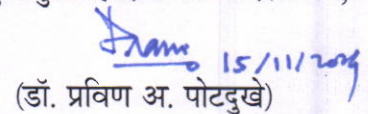 15/11/2024
(डॉ. प्रविण अ. पोटदुखे)